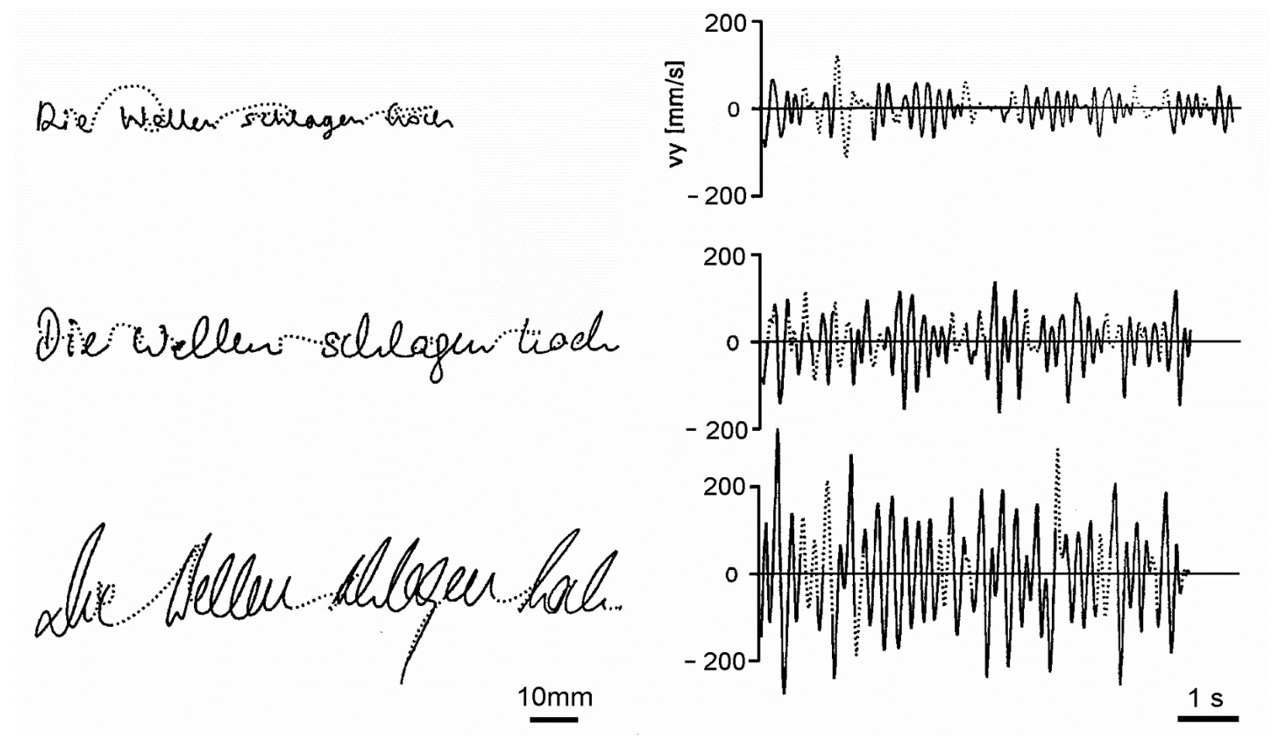 Die Wellen schlagen hoch
200
vy [mm/s]
0
- 200
Die Wellen schlagen hoch
200
0
- 200
Die Wellen schlagen hoch
200
0
- 200
10mm
1 s